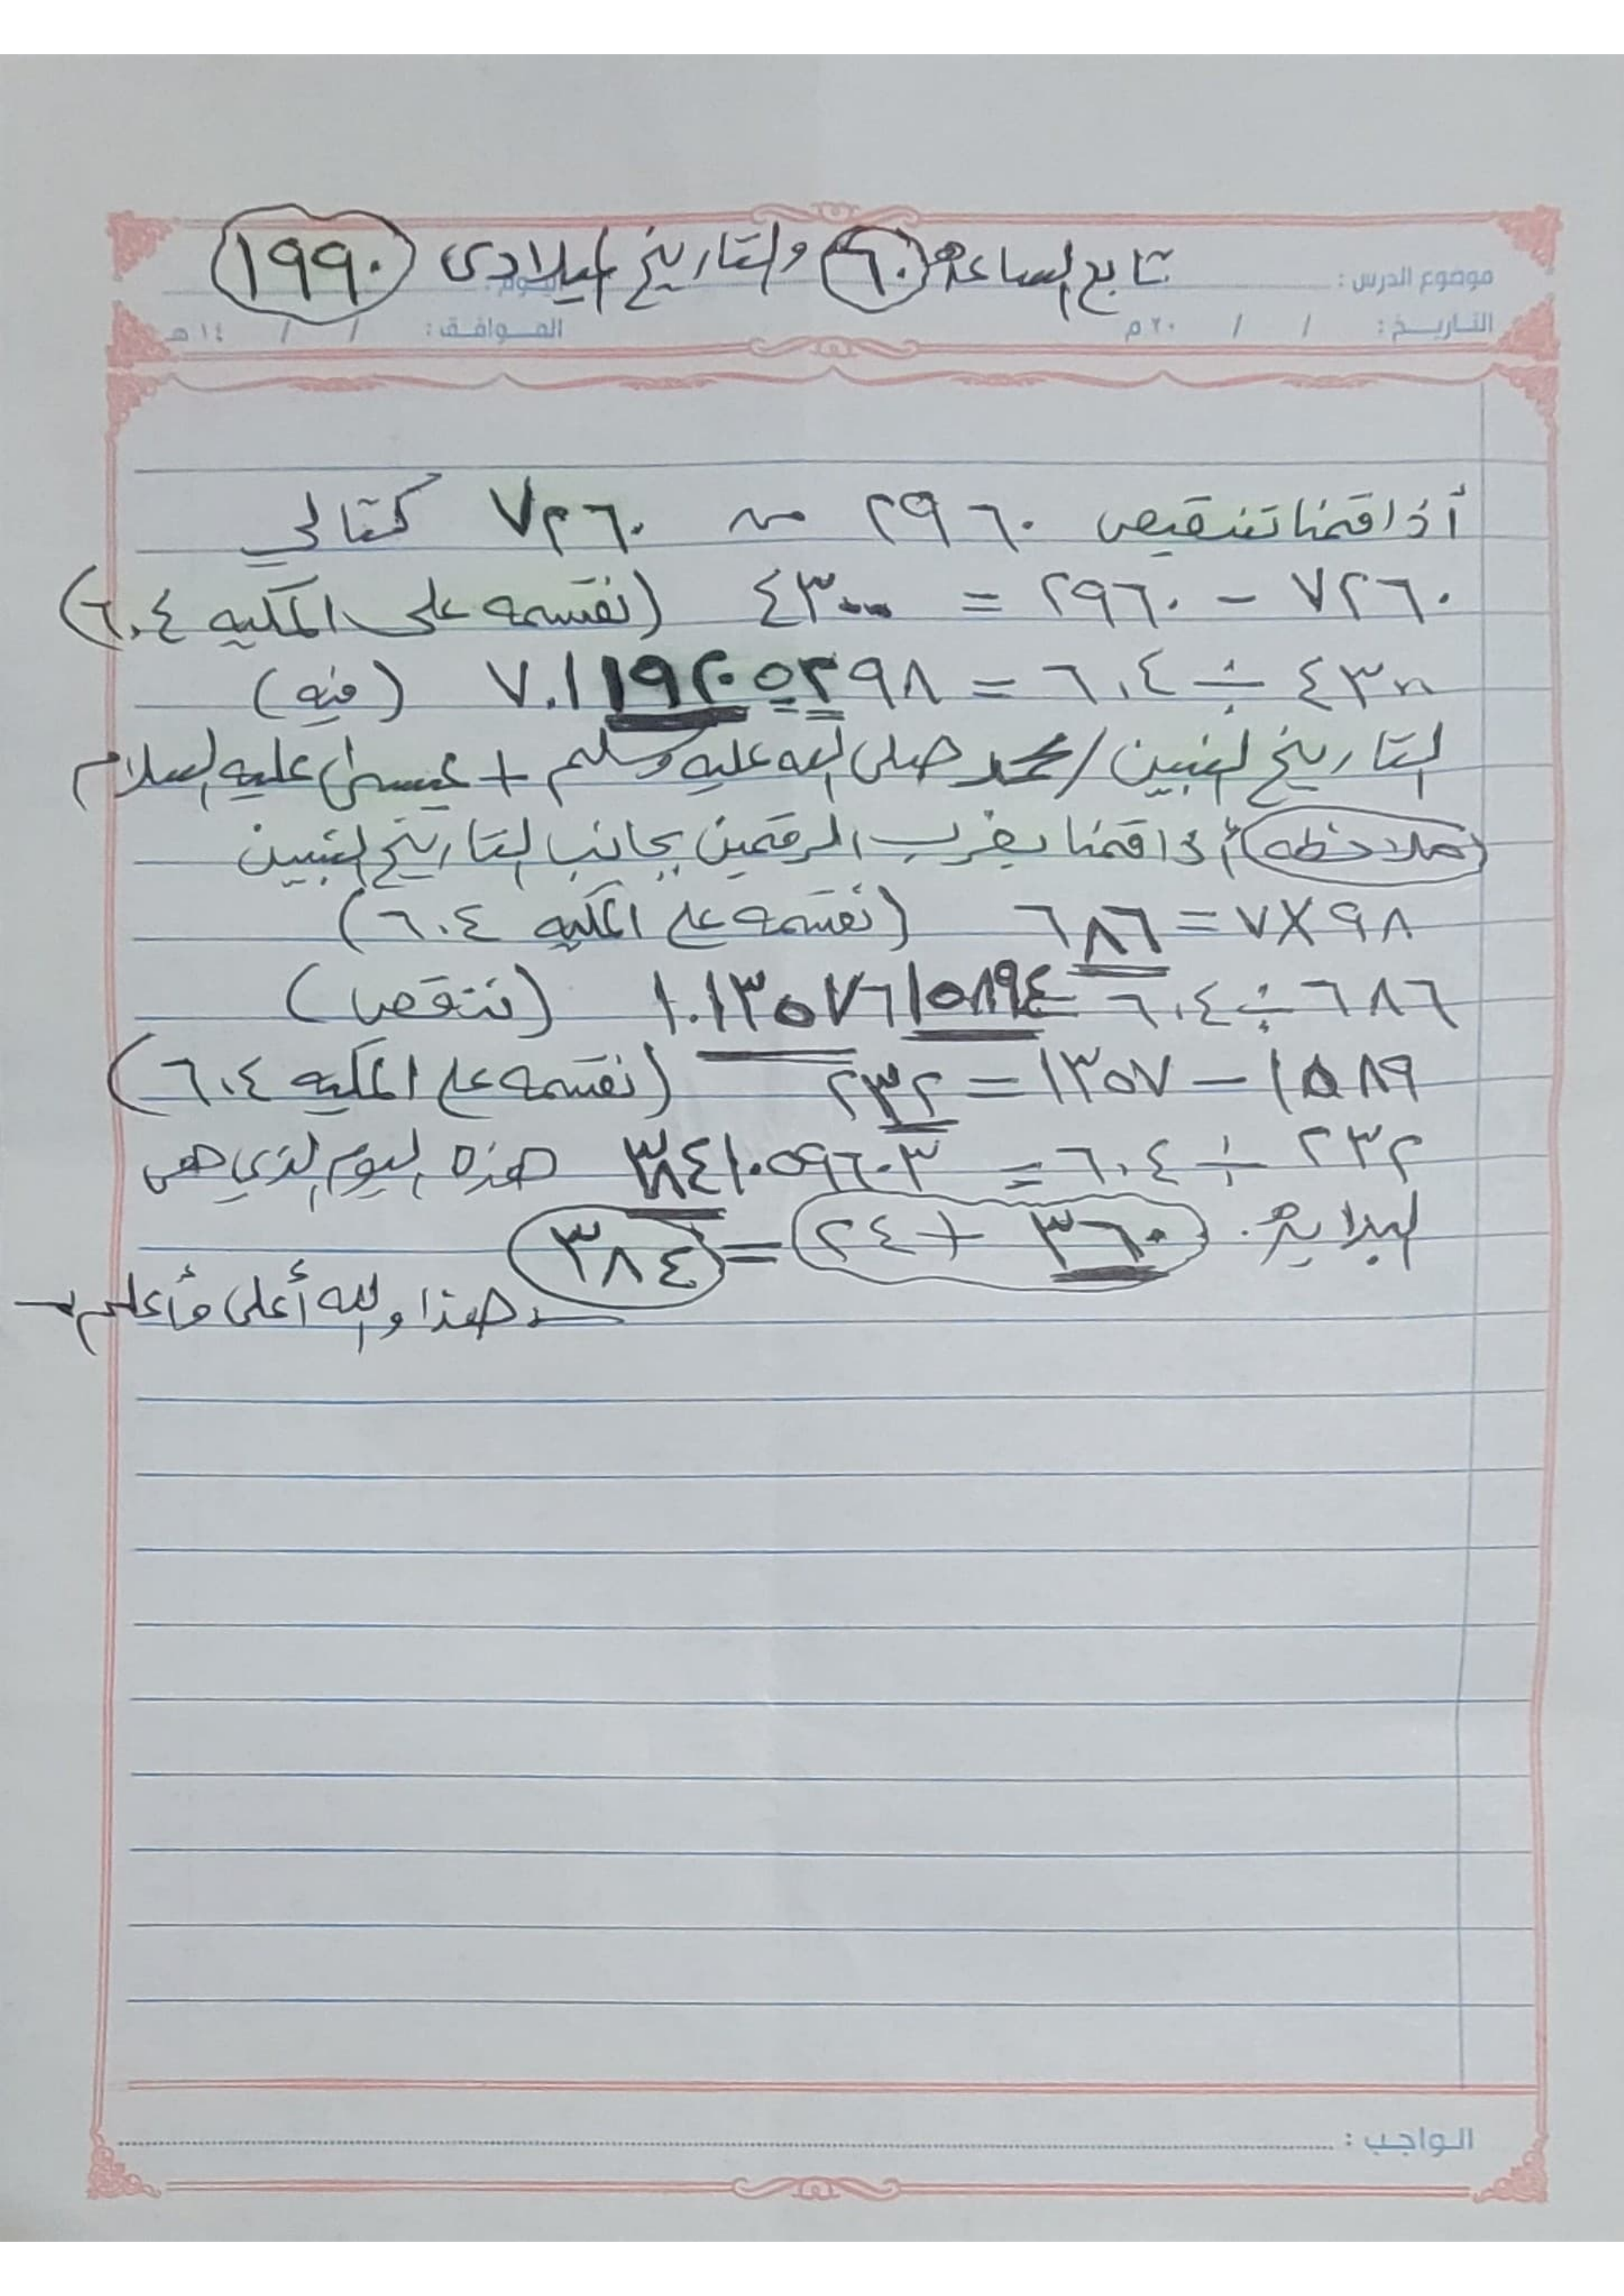 تابع الساعة ٦٠ والتاريخ الميلادى ١٩٩٠
موضوع الدرس : اليوم :
التاريخ : / / ٢٠م الموافق : / / ١٤هـ
أذا قمنا تنقيص ٢٩٦٠ من ٧٢٦٠ كتالي
٧٢٦٠ - ٢٩٦٠ = ٤٣٠٠ (نقسمه على المكيه ٦٠٤)
٤٣٠٠ ÷ ٦٠٤ = ٧.١١٩٢٠٥٢٩٨ (فيه)
التاريخ لنبين / محمد صلى الله عليه وسلم + عيسى عليه السلام
(ملاحظه) أذا قمنا بضرب الرقمين بجانب التاريخ لنبين
٩٨ × ٧ = ٦٨٦ (نقسمه على المكيه ٦٠٤)
٦٨٦ ÷ ٦٠٤ = ١.١٣٥٧٦١٥٨٩٤ (ننقص)
١٥٨٩ - ١٣٥٧ = ٢٣٢ (نقسمه على المكيه ٦٠٤)
٢٣٢ ÷ ٦٠٤ = ٣٨٤١٠٥٩٦٠٣ هذه اليوم الذي هى
البداية. ٣٦٠ + ٢٤ = ٣٨٤
هذا والله أعلى وأعلم
الواجب :